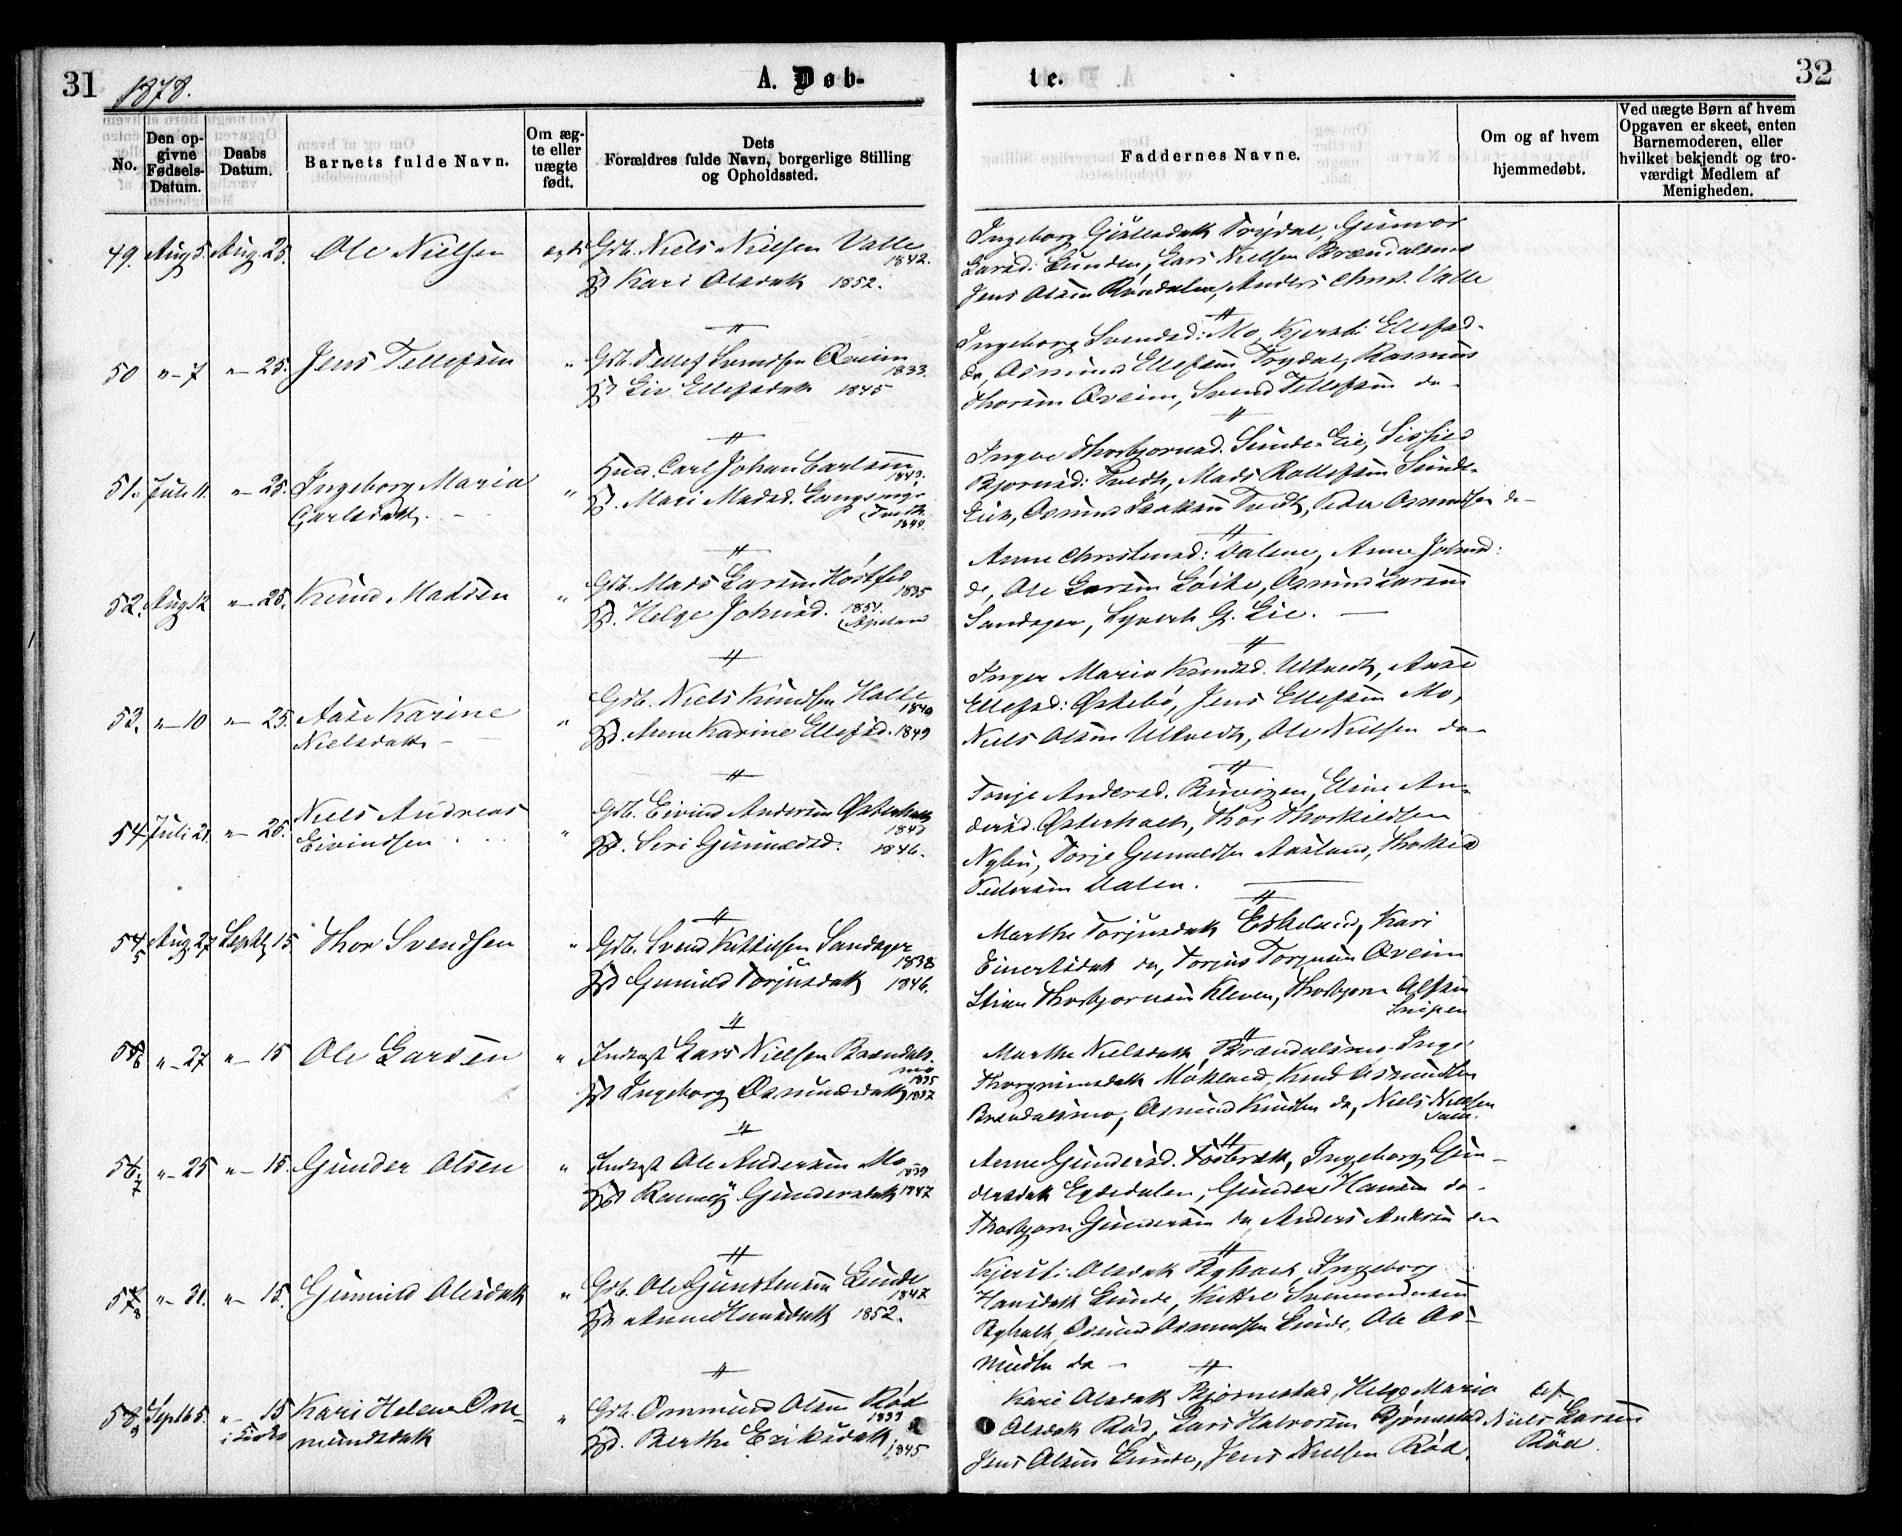 31
1878.
A. Døb-
te.
32
No.
Den op-
givne
Fødsels-
Datum.
Daabs
Datum.
Barnets fulde Navn.
Om æg-
te eller
uægte
født.
Dets
Forældres fulde Navn, borgerlige Stilling
og Opholdssted.
Faddernes Navne.
Om og af hvem
hjemmedøbt.
Ved uægte Børn af hvem
Opgaven er skeet, enten
Barnemoderen, eller
hvilket bekjendt og tro-
værdigt Medlem af
Menigheden.
49. Aug 5. Aug 25. Ole Nielsen ægte Gdb. Niels Nielsen Valle 1842.
Kari Olsdatt 1852.
Ingeborg Gislesdatt Trydal, Gunvor
Larsd: Lunden, Lars Nielsen Brændalsmo
Jens Olsen Røndalen, Anders Christ. Valle
50 " 7 " 25. Jens Tellefsen " Gdb. Tellef Svendsen Øveim 1833.
Liv Ellefsdatt 1845
Ingeborg Svendsd: Mo, Kjersti Ellefsd.
do, Asmund Ellefsen Trydal, Rasmus
Thorsen Øveim, Svend Tellefsen do
51. Juli 11. " 25. Ingeborg Maria " Carl Johan Carlsen 1843.
Carlsdatt. Mari Madsd. Langsmyr
Tvedt
1844.
Inger Thorbjørnsd. Sunde Eie,
Bjørnsd: Tvedt, Mads Rollefsen Sunde
Eie, Asmund Isaksen Tvedt, Peder Osmundsen do
52. Aug 12 " 25. Knud Madsen " Gdb. Mads Larsen Høstfed 1835
Helge Johnsd. 1851.
Anne Christensd: Dalene, Anne Johnsd:
do, Ole Larsen Løite, Asmund Larsen
Sandager, Syvert G. Eie.
53. " 10 " 25. Aase Karine " Gdb. Niels Knudsen Holte 1840
Nielsdatt Anne Karine Ellefsd. 1849
Inger Maria Knudsd. Ulltvedt, Aase
Ellefsd: Østebø, Jens Ellefsen Mo,
Niels Olsen Ulltvedt, Ole Nielsen do
54 Juli 21. " 25. Niels Andreas " Gdb. Eivind Andersen Østerholt
Eivindsen Siri Gunuldsd. 1846.
Tonje Andersd. Buvigen, Eline An-
dersd. Østerholt, Thor Thorkildsen
Nylin, Torje Gunuldsen Aasland, Thorkild
Pedersen Dalen.
54 5 Aug 27 Septb 15. Thor Svendsen " Gdb. Svend Kittilsen Sandager 1838
Gunuld Torjusdatt 1846.
Marthe Torjusdatt Eskeland, Kari
Einertsdatt do, Torjus Torjusen Øveim
Stian Thorbjørnsen Kleven, Thorbjørn Olsen
Snipen
55 6 " 27 " 15 Ole Larsen " Inderst Lars Nielsen Brændals-
mo
1835
Ingeborg Osmundsdatt 1837
Marthe Nielsdatt Brændalsmo, Inge
Thorgrimsdatt Mokland, Knud Asmundsen
Brændalsmo, Asmund Knudsen do, Niels Nielsen
56 7 " 25 " 15. Gunder Olsen " Inderst Ole Andersen Mo 1839
Gundersdatt 1847
Anne Gundersd. Fosbræk, Ingeborg Gun-
dersdatt Eydedalen, Gunder Hansen do.
Thorbjørn Gundersen do, Anders do
57 8 " 31. " 15. Gunuld Olesdatt " Gdb. Ole Gunstensen Lunde 1847
Anne Hansdatt 1852.
Kjersti Olesdatt Byholt, Ingeborg
Hansdatt Lunde, Kittel Svennungsen
Byholt, Osmund Osmundsen Lunde, Ole As-
mundsen do
58 9 Septb 5. " 15 Kari Helene Om- " Gdb. Ommund Olsen Rød 1839
i Kirken mundsdatt Berthe Eriksdatt 1845
Kari Olsdatt Bjørnestad, Helge Maria
Olsdatt Rød, Lars Halvorsen Bjørnestad
Jens Olsen Lunde, Jens Nielsen Rød.
af
Niels Larsen
Rød.